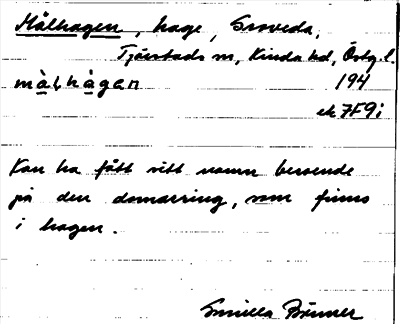 Målhagen, hage, Svoveda,
Tjärstads sn, Kinda hd, Östg. l.
màlhàgen 194
ek 7F9i
Kan ha fått sitt namn beroende
på den domarring, som finns
i hagen.
Gunilla Brunner